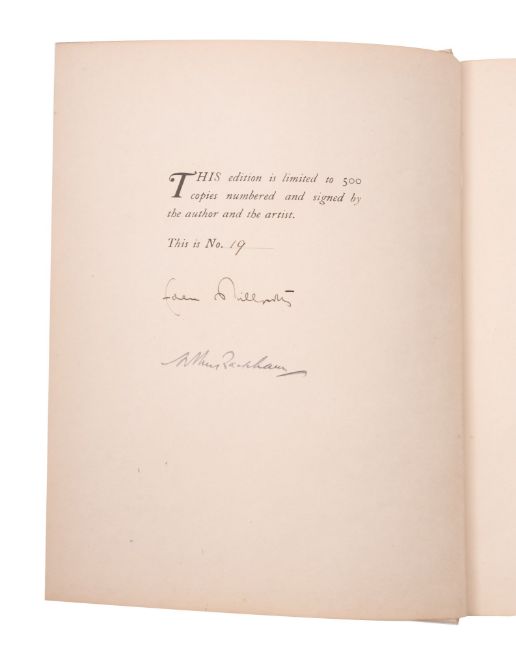 THIS edition is limited to 500
copies numbered and signed by
the author and the artist.
This is No. 19
Eden Phillpotts
Arthur Rackham